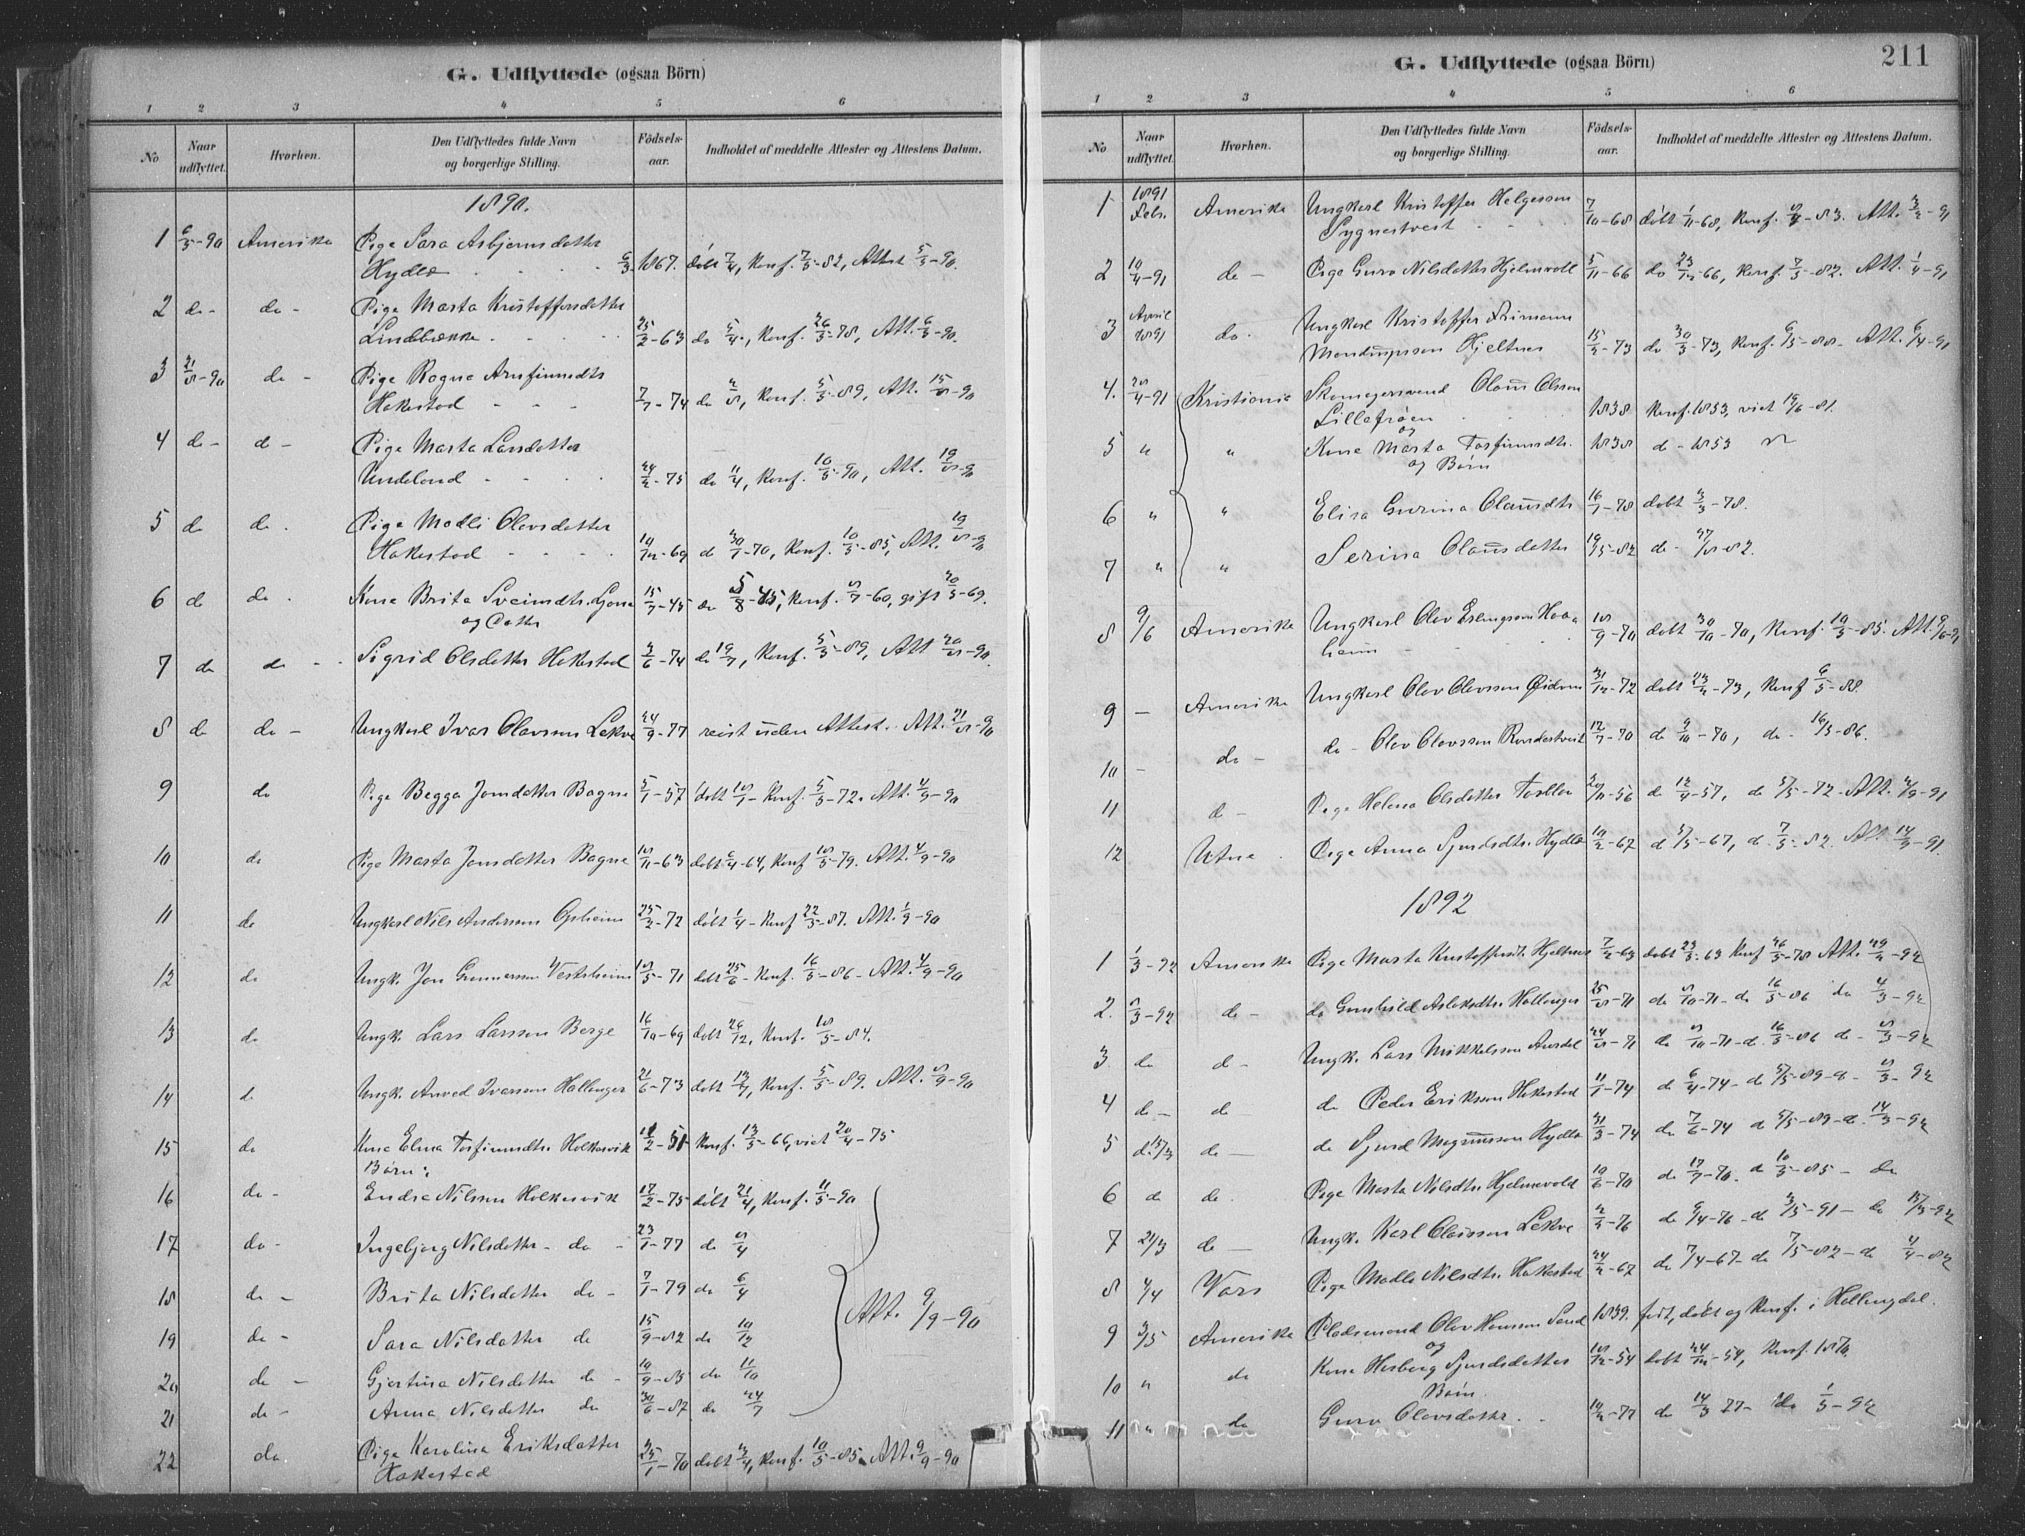 G. Udflyttede (ogsaa Börn)
1 2 3 4 5 6
No
Naar udflyttet.
Hvorhen.
Den Udflyttedes fulde Navn og borgerlige Stilling.
Födsels-aar.
Indholdet af meddelte Attester og Attestens Datum.
1890.
1 6/5-90 Amerika Pige Sara Asbjørnsdatter
Hydle 6/3 1867. døbt 7/4, Konf. 7/5-82, Attest 5/5-90.
2 do - do - Pige Marta Kristoffersdatter
Lindebrække 25/2-63 do 5/4, Konf. 26/5-78, Att. 6/5-90.
3 21/8-90 do - Pige Ragna Arnfinnsdtr
Hakestad 7/7-74 do 2/8, Konf. 5/5-89, Att. 15/8-90
4 do - d - Pige Marta Larsdatter
Undeland 24/2-75 do 11/4, Konf. 10/5-90, Att. 19/8-90
5 do do . Pige Madli Olavsdatter
Hakestad 10/12-69 d 30/1-70, Konf. 10/5-85, Att. 19/8-90
6 d do . Kone Brita Sveinsdtr. Lione 15/7-45 do 5/8-45, Konf. 8/7-60, gift 20/5-69.
og Datter
7 do do - Sigrid Olsdatter Hakestad 3/6-74 do 19/7, Konf. 5/5-89, Att 20/8-90.
8 do do - Ungkarl Ivar Olavsson Lekve 24/9-77 reist uden Attest. Att. 21/8-90
9 do Pige Begga Jonsdatter Bagne 5/1-57 døbt 18/1- Konf. 5/5-72. Att. 4/9-90
10 do Pige Marta Jonsdatter Bagne 18/11-63 døbt 6/4-64, Konf 18/5-79. Att. 4/9-90
11 do Ungkarl Nils Andersson Opheim 25/2-72 døbt 1/4 - Konf 22/5-87. Att. 1/9-90
12 do Ungk. Jon Gunnarsson Vestrheim 18/5-71 døbt 25/6 - Konf. 16/5-86 - Att. 4/9-90
13 do Ungk. Lars Larsson Berge 16/10-69 døbt 26/12, Konf. 18/5-84.
14 d Ungk. Anved Ivarsson Hallanger 21/6-73 døbt 13/7, Konf. 5/5-89. Att. 8/9-90
15 do Kone Elina Torfinnsdtr. Holkesvik 11/2-51 Konf. 13/5-66, viet 20/4-75
Børn:
16 do - Endre Nilsson Holkesvik 17/2-75 døbt 21/4, Konf. 11/5-90
17 do - Ingebjørg Nilsdatter - do - 23/1-77 do 8/4
18 do - Brita Nilsdatter do - 7/1-79 do 6/4
Att. 9/9-90
19 do - Sara Nilsdatter do 15/9-82 do 10/12
20 do - Gjertina Nilsdatter do - 10/9-85 do 11/10
21 do - Anna Nilsdatter do 30/6-87 do 24/7
22 do Pige Karolina Eriksdatter
Hakestad 25/1-70 døbt 3/4, Konf. 10/5-85. Att. 9/9-90
G. Udflyttede (ogsaa Börn) 211
1 2 3 4 5 6
No
Naar udflyttet.
Hvorhen.
Den Udflyttedes fulde Navn og borgerlige Stilling.
Födsels-aar.
Indholdet af meddelte Attester og Attestens Datum.
1 1891 Febr. Amerika Ungkarl Kristoffer Helgesson
Sygnestveit 7/10-68 døbt 1/11-68, Konf. 8/4-83. Att. 3/2-91
2 10/4-91 do - Pige Guro Nilsdatter Hjelmevoll 5/11-66 do 23/12-66, Konf. 7/5-82. Att. 1/4-91
3 April 1891 do. Ungkarl Kristoffer
Hjeltnes 15/2-73 do 30/3-73, Konf. 6/5-88 - Att. 6/4-91
4. 28/4-91 Kristiania Skomagersvend Claus Olsson
Lillefrøen 1838 Konf. 1853, viet 19/6-81.
og
5 " " Kone Marta Torfinnsdtr. 1838 d - 1853
og Børn
6 " " Elisa Gurina Clausdtr 16/7-78 døbt 3/3-78.
7 " " Serina Clausdatter 19/5-82 do - 27/8-82.
8 9/6 Amerika Ungkarl Olav Erlingsson Haa-
heim 18/9-70 døbt 30/10-70, Konf. 10/5-85. Att. 9/6-91
9 - Amerika Ungkarl Olav Olavsson 31/12-72 døbt 23/2-73, Konf 6/5-88.
10 - do - do - Olav Olavsson 12/7-70 do 9/10-70, do - 16/5-86.
11 d - Pige Helena Olsdatter Torblaa 20/11-56 do 12/4-57, do 5/5-72 - Att. 2/9-91
12 Utne . Pige Anna Sjurdsdtr. Hydle 10/2-67 d 5/5-67, d. 7/5-82. Att 14/9-91.
1892
1 1/3-92 Amerika Pige Marta Kristoffersdt. Hjeltnes 7/2-63 døbt 23/3-63 Konf 26/5-78 Att. 29/2-92
2. 8/3-92 do - do Gunhild Aslaksdtr. Hallanger 25/8-71 do 8/10-71 - do 16/5-86 do 4/3-92
3 do d - Ungk. Lars Mikkelsson Aurdal 24/8-71 do 8/10-71 - d. 16/5-86 do - 8/3-92
4 do - d - do Peder Eriksson Hakestad 11/1-74 d 6/4-74 - d 5/5-89 - d - 8/3-92
5 d. 15/3 do - do Sjurd Magnusson Hydle 31/3-74 do 7/6-74 d 5/5-89 - d. 14/3-92
6 d do. Pige Marta Nilsdtr Hjelmevold 10/6-70 do 17/7-70. d 10/5-85 - do
7 21/3 do - Ungk. Karl Olavsson Lekve 2/3-76 do 9/4-76 - do 3/5-91 - do 15/3-92
8 4/4 Voss Pige Madli Nilsdtr. Hakestad 24/2-67 do 7/4-67 - do 7/5-82 - d 4/4-82
9 3/5 Amerika Pladsmand Olav Hansson Sand 1839. født, døbt og Konf. i Hallingdal.
og
10 " do Kone Herborg Sjurdsdatter 18/12-54 døbt 24/12-54, Konf. 1870.
Børn.
11 " do Guro Olavsdatter . 10/2-77 do 14/3 77 - do 1/5-92